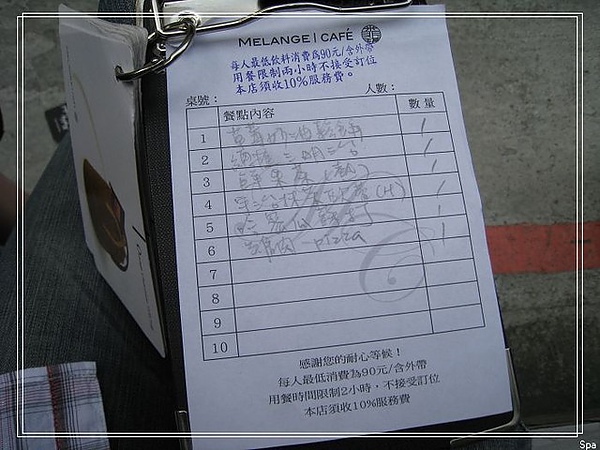 MELANGE | CAFÉ
每人最低飲料消費為90元/含外帶
用餐限制兩小時不接受訂位
本店須收10%服務費。
桌號： 人數：
餐點內容 數量
1 草莓奶油鬆餅 /
2 總匯三明治 /
3 蘋果 /
4 /
5 哈蜜瓜 /
6 燻雞 pizza /
7
8
9
10
感謝您的耐心等候！
每人最低消費為90元/含外帶
用餐時間限制2小時，不接受訂位
本店須收10%服務費
Spa